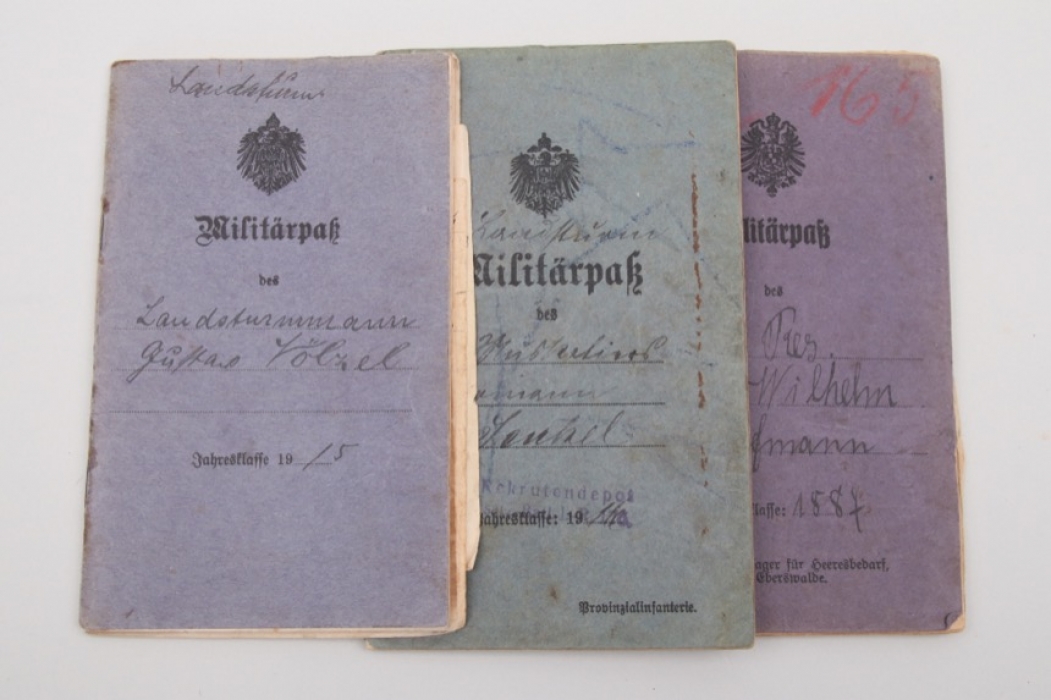 Landsturm
Militärpaß
des
Landsturmmann
Gustav Völzel
Jahresklasse 1915
Landsturm
Militärpaß
des
Musketiers
mann
Rekrutendepot
Jahresklasse: 19
Provinzialinfanterie.
165
litärpaß
des
Res.
Wilhelm
mann
lasse: 1887
ager für Heeresbedarf,
Eberswalde.